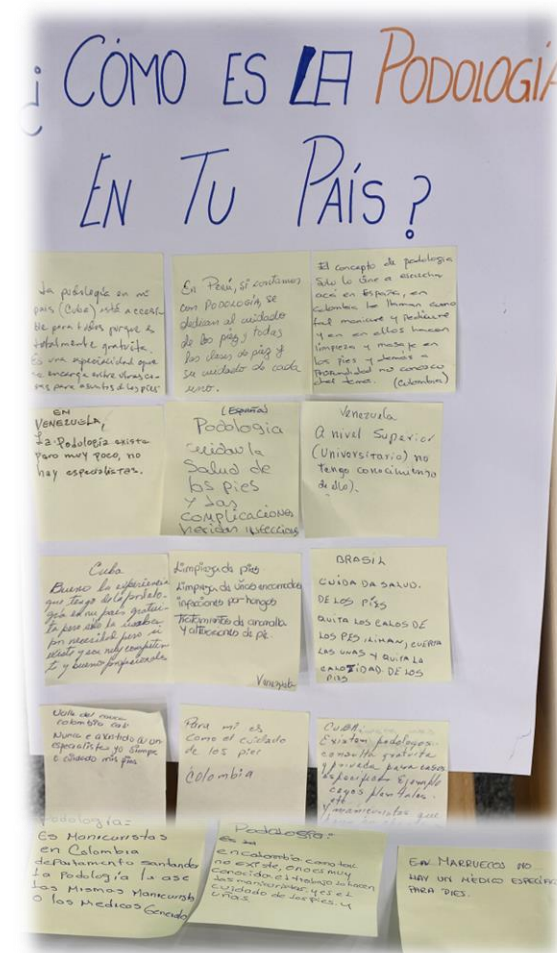 ¿CÓMO ES LA PODOLOGÍA
EN TU PAÍS?
La podología en mi
pais (Cuba) está accesi
ble para todos porque es
totalmente gratuita,
Es una especialidad que
se encarga entre otras co
sas para asuntos de los pies
En Perú, si contamos
con PODOLOGÍA, se
dedican al cuidado
de los pies y todas
las clases de pies y
su cuidado de cada
uno.
El concepto de podologia
solo lo vine a escuchar
acá en España, en
colombia lo llaman como
tal manicure y pedicure
y en ellos hacen
limpieza y masaje en
los pies y demás a
profundidad no conozco
otros temas. (Colombia)
EN
VENEZUELA,
La Podología existe
pero muy poco, no
hay especialistas.
(España)
Podologia
cuidar la
Salud de
los pies
y las
COMPLICACIONES
heridas INFECCIONES
Venezuela
A nivel Superior
(Universitario) no
tengo conocimiento
de ello).
Cuba
Bueno la experiencia
que tengo de la podolo
gía en mi pais gratui
ta pero solo la
por necesidad pero si
existe y son muy competen
t y buenos profesionales
Limpieza de pies
Limpieza de uñas encarnadas
infecciones por hongos
Tratamientos de
y alteraciones de pie.
Venezuela
BRASIL
CUIDA DA SALUD.
DE LOS PIES
QUITA LOS CALOS DE
LOS PES, LIMAN, CUERTA
LAS UNAS Y QUITA LA
DE LOS
PIES
Valle del cauca
colombia cali
Nunca e asistido a un
especialista yo siempre
e cuidado mis pies
Para mi es
como el cuidado
de los pies
Colombia
CUBA
Existen podologos
consulta gratuita
y privada para casos
especificos Ejemplo
callos plantales.
ett.
y manicuristas que
Podologia:
Es Manicuristas
en Colombia
departamento santander
La Podologia la ase
Las Mismas Manicurista
o los Medicos General
Podologia:
Es la
en colombia como tal
no existe, eno es muy
Conocida. el trabajo lo hacen
las manicuristas y es el
cuidado de los pies. y
uñas.
EN MARRUECOS NO
HAY UN MÉDICO ESPECÍFICO
PARA PIES.